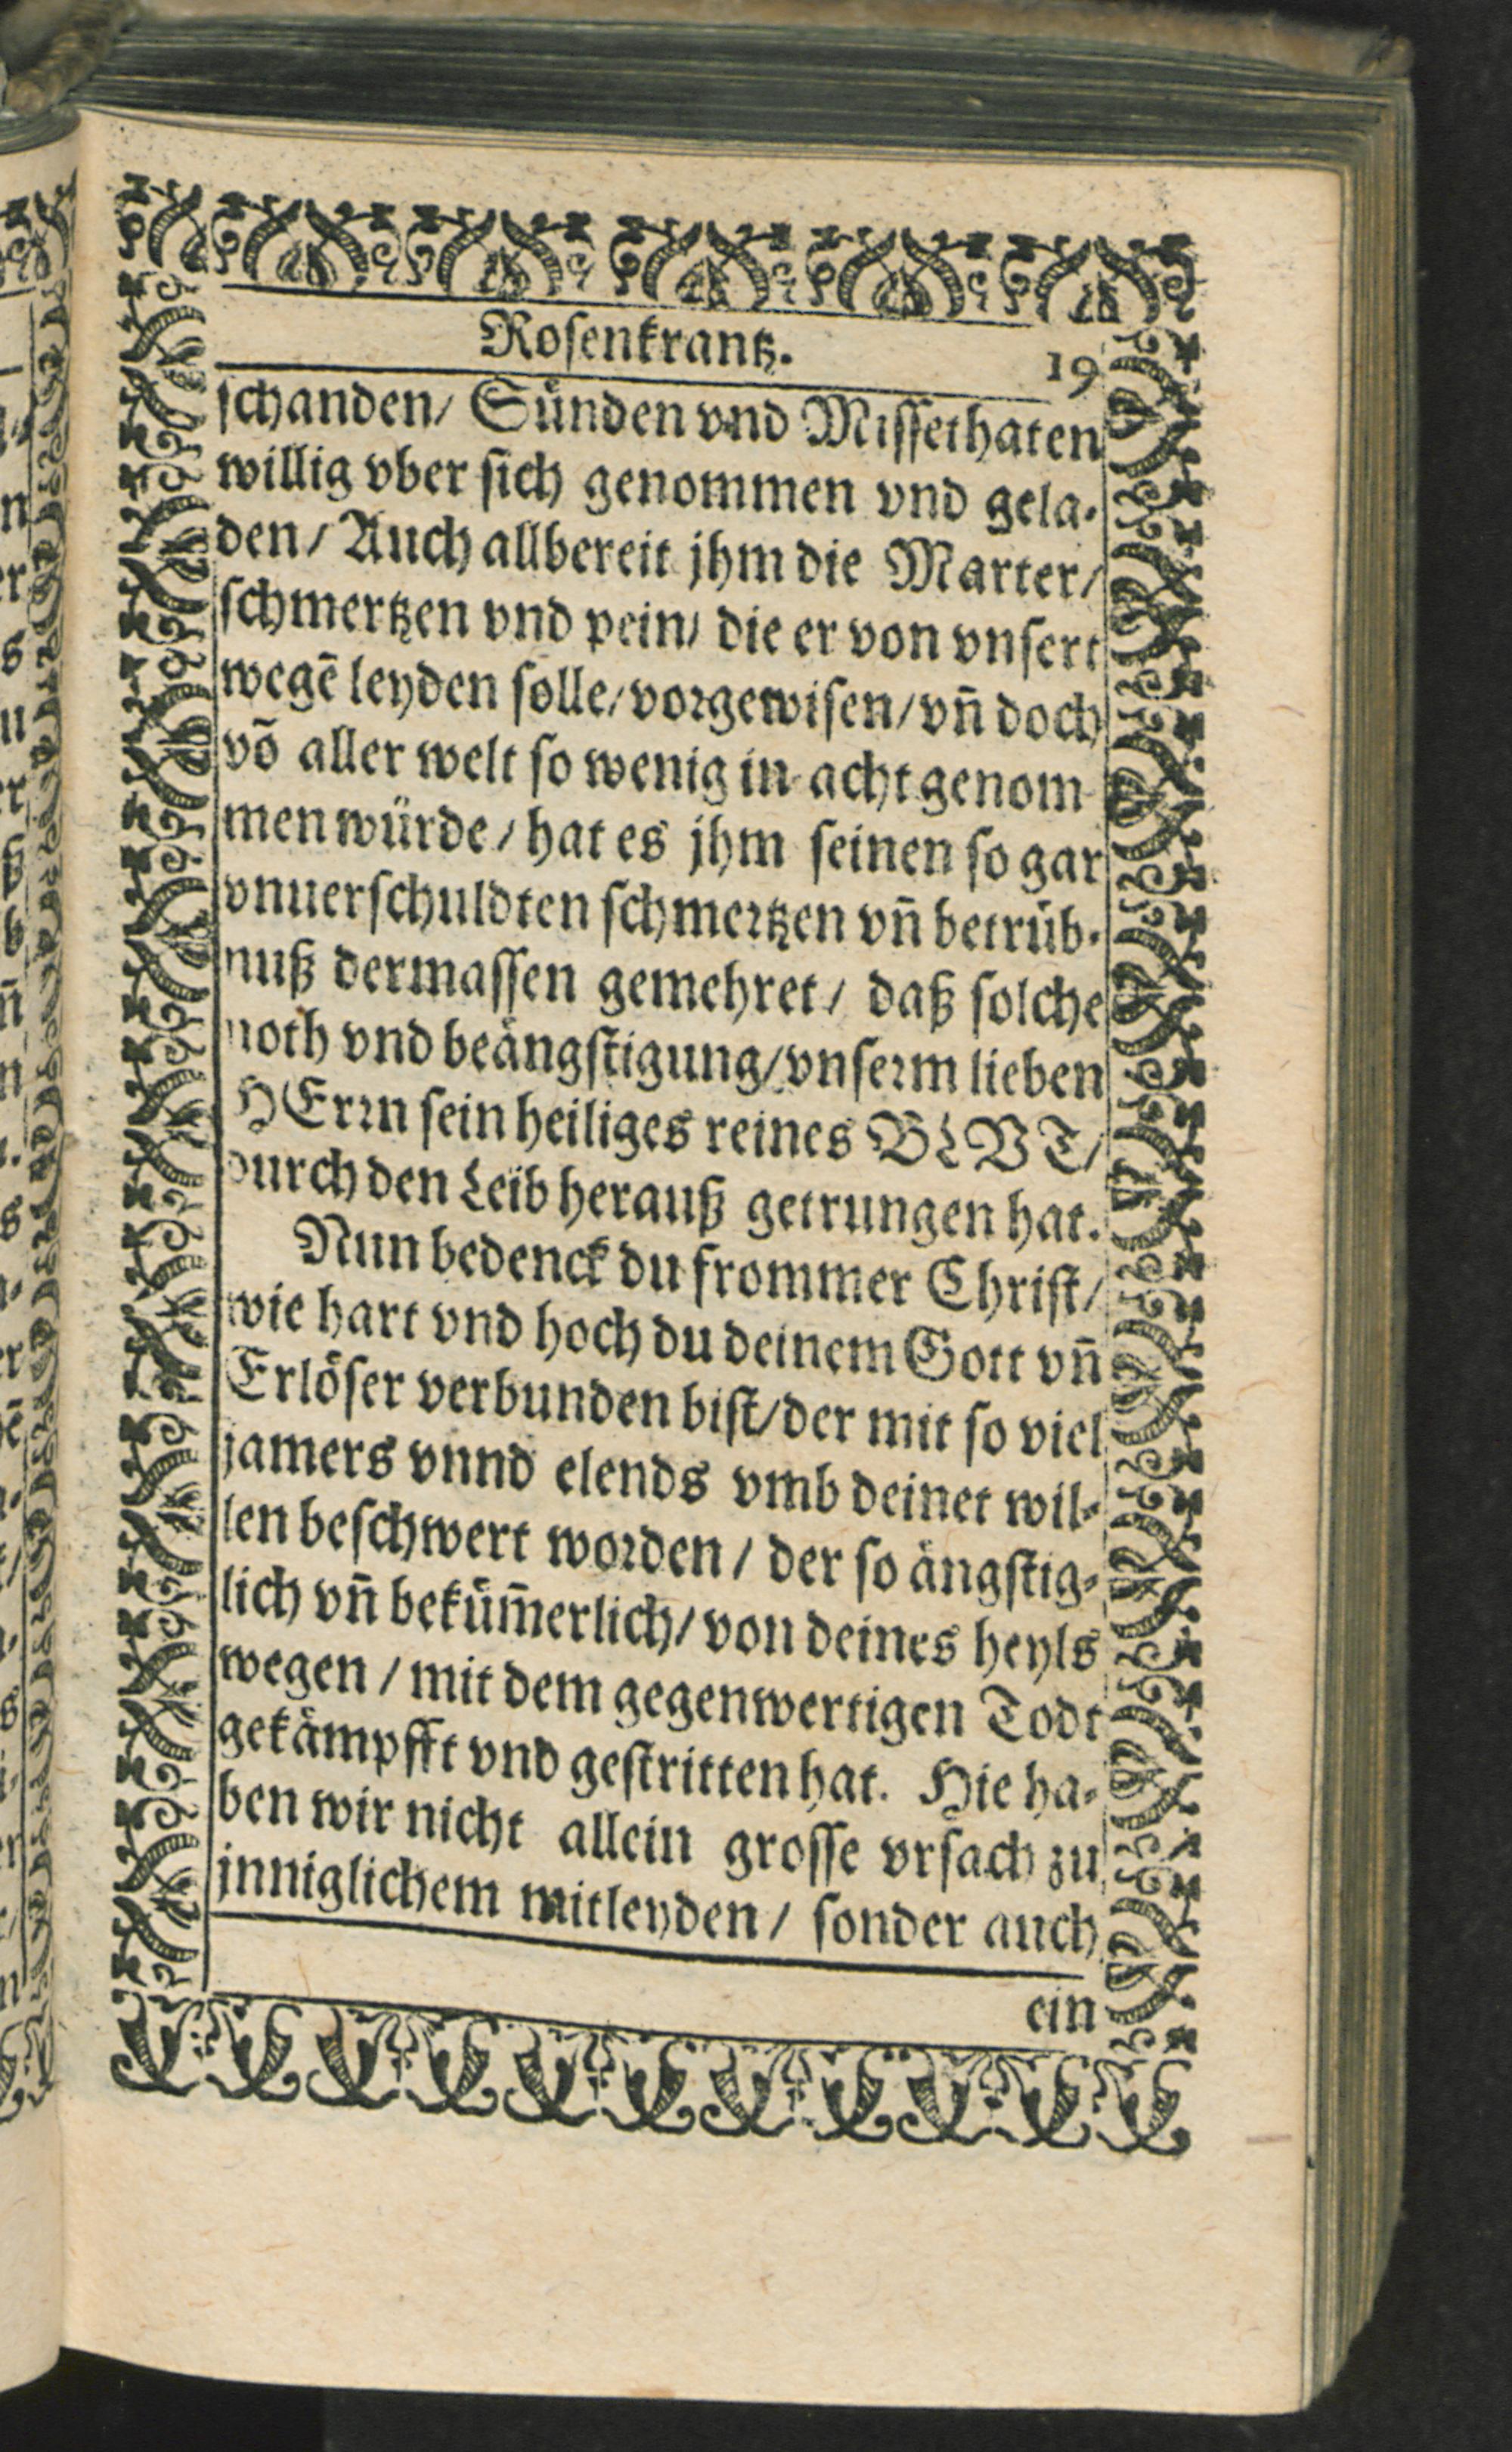 Rosenkrantz. 19
schanden/ Sünden vnd Missethaten
willig vber sich genommen vnd gela-
den/ Auch allbereit jhm die Marter/
schmertzen vnd pein/ die er von vnsert
wegē leyden solle/ vorgewisen/ vn̄ doch
võ aller welt so wenig in acht genom
men würde/ hat es jhm seinen so gar
vnuerschuldten schmertzen vn̄ betrüb-
nuß dermassen gemehret/ daß solche
noth vnd beängstigung/ vnserm lieben
HErrn sein heiliges reines BLVT/
durch den Leib herauß getrungen hat.
Nun bedenck du frommer Christ/
wie hart vnd hoch du deinem Gott vn̄
Erlöser verbunden bist/ der mit so viel
jamers vnnd elends vmb deinet wil-
len beschwert worden/ der so ängstig-
lich vn̄ beküm̄erlich/ von deines heyls
wegen/ mit dem gegenwertigen Todt
gekämpfft vnd gestritten hat. Hie ha-
ben wir nicht allein grosse vrsach zu
jnniglichem mitleyden/ sonder auch
ein